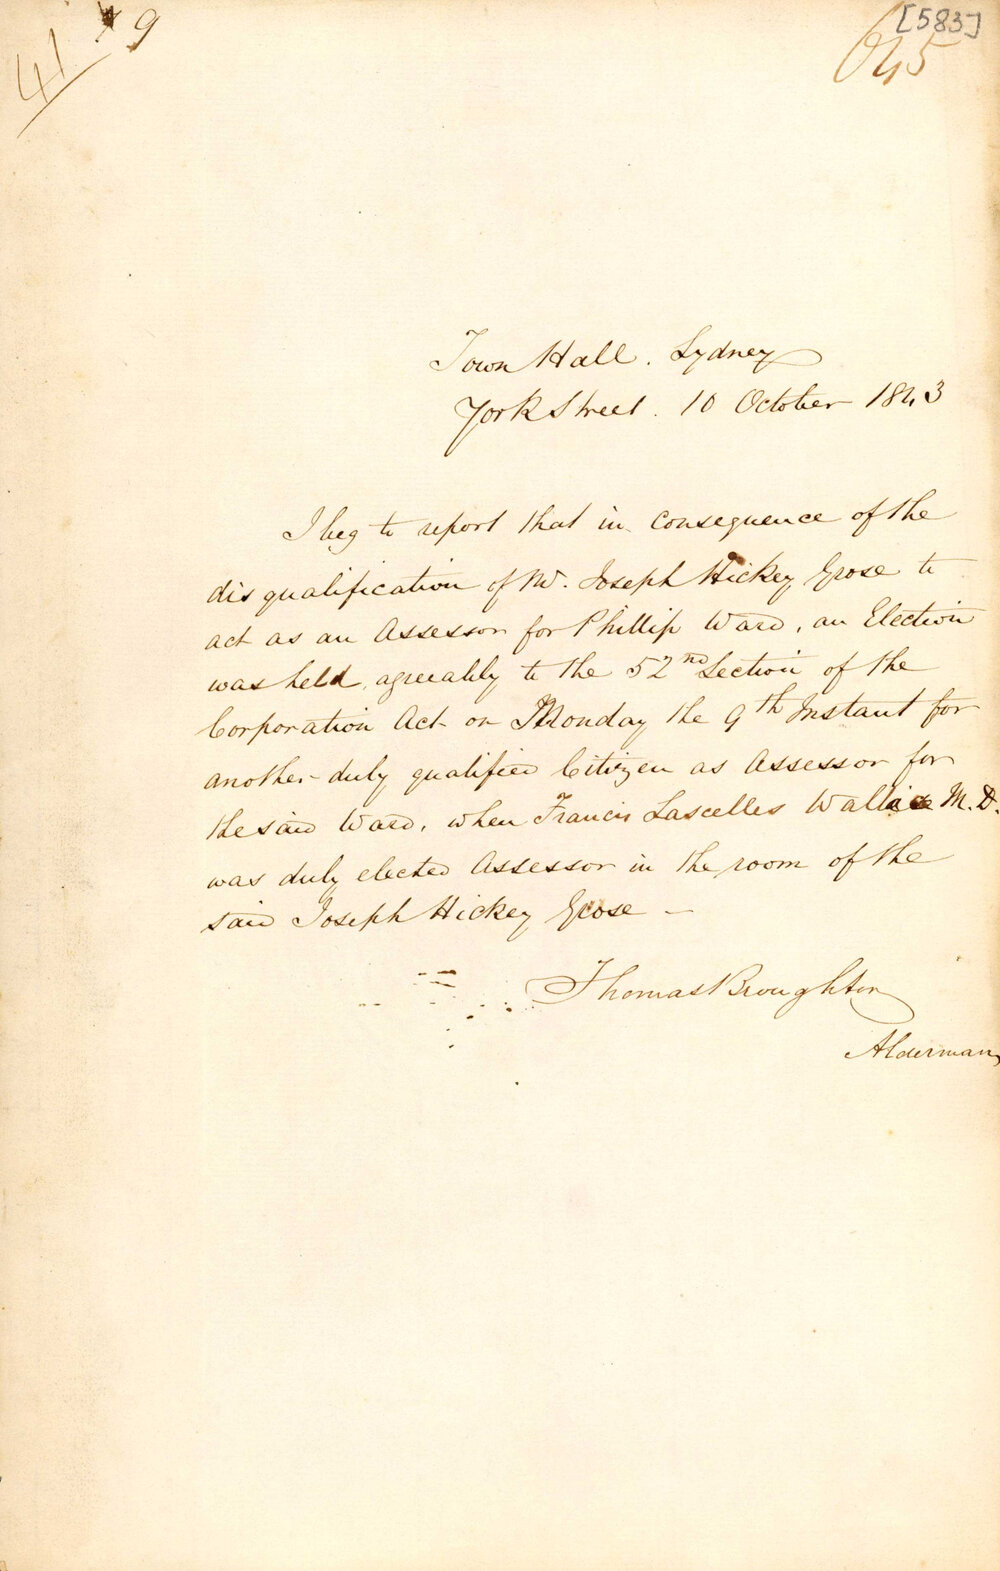 41 9
[583]
645
Town Hall. Sydney
York Street. 10 October 1843
I beg to report that in consequence of the
disqualification of Mr. Joseph Hickey Grose to
act as an Assessor for Phillip Ward, an Election
was held, agreeably to the 52nd Section of the
Corporation Act on Monday the 9th Instant for
another duly qualified Citizen as Assessor for
the said Ward, when Francis Lascelles Wallace M.D.
was duly elected Assessor in the room of the
said Joseph Hickey Grose –
Thomas Broughton
Alderman